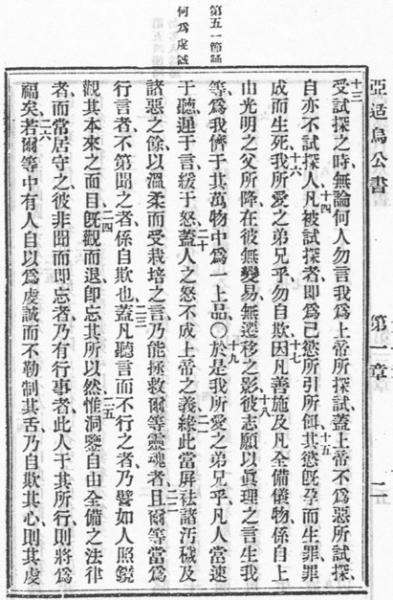 亞适烏公書 第一章 二
十三受試探之時、無論何人勿言我爲上帝所探試、蓋上帝不爲惡所試探、
自亦不試探人、十四凡被試探者、即爲己慾所引所餌、十五其慾既孕而生罪、罪
成而生死、十六我所愛之弟兄乎、勿自欺、十七因凡善施及凡全備儀物、係自上
由光明之父所降、在彼無變易、無遷移之影、十八彼志願以眞理之言生我
等、爲我儕于其萬物中爲一上品、〇十九於是我所愛之弟兄乎、凡人當速
于聽、遲于言、緩于怒、二十蓋人之怒不成上帝之義、二一緣此當屏袪諸汚穢及
諸惡之餘、以溫柔而受栽培之言、乃能拯救爾等靈魂者、二二且爾等當爲
行言者、不第聞之者、係自欺也、二三蓋凡聽言而不行之者、乃譬如人照鏡
觀其本來之面目、二四既觀而退、即忘其所以然、二五惟洞鑒自由全備之法律
者、而常居守之、彼非聞而即忘者、乃有行事者、此人于其所行、則將爲
福矣、二六若爾等中有人自以爲虔誠、而不勒制其舌、乃自欺其心、則其虔
第五一節誦
何爲虔誠